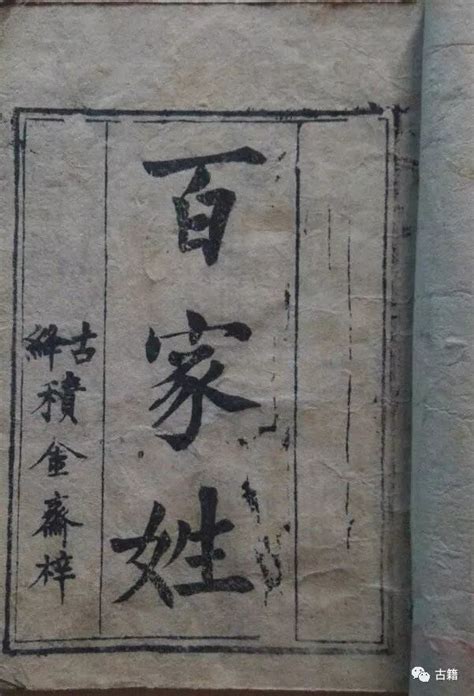 百家姓
古絳積金齋梓
古籍